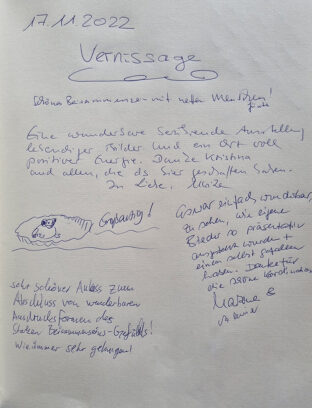 17.11.2022
Vernissage
schönes Beisammensein mit netten Menschen!
Eine wunderbare berührende Ausstellung
lebendiger Bilder und ein Ort voll
positiver Energie. Danke Kristina
und allen, die das hier geschaffen haben.
In Liebe,
Großartig!
Es war einfach wunderbar,
zu sehen, wie eigene
Bilder so präsentativ
ausgestellt wurden +
einem selbst gefallen
haben. Danke für
die schöne Koordination
sehr schöner Anlass zum
Abschluss von wunderbaren
Ausdrucksformen des
starken Beisammenseins-Gefühls!
Wie immer sehr gelungen!